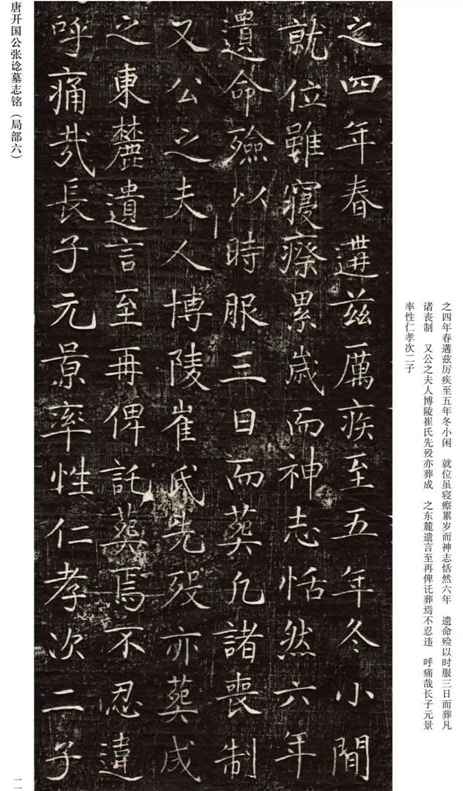 之四年春遘兹厉疾至五年冬小闲　就位虽寝瘵累岁而神志恬然六年　遗命殓以时服三日而葬凡
诸丧制　又公之夫人博陵崔氏先殁亦葬成　之东麓遗言至再俾讬葬焉不忍违　呼痛哉长子元景
率性仁孝次二子
之四年春遘兹厲疾至五年冬小閒
就位雖寢瘵累歳而神志恬然六年
遺命殮以時服三日而葬凡諸喪制
又公之夫人博陵崔氏先殁亦葬成
之東麓遺言至再俾託葬焉不忍違
呼痛哉長子元景率性仁孝次二子
唐开国公张谂墓志铭（局部六）
一一